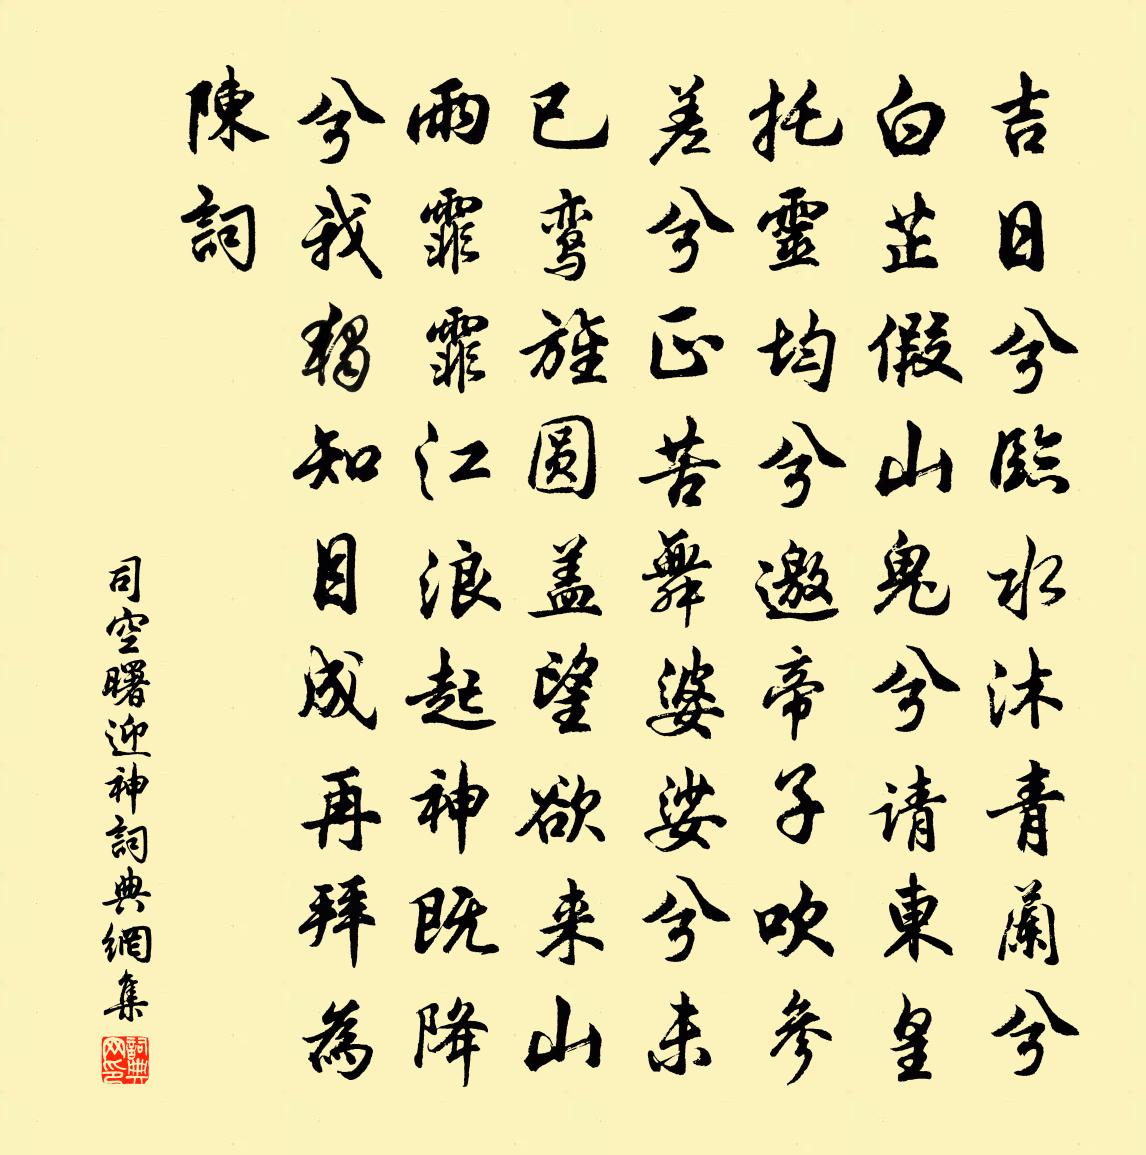 吉日兮臨水沐青蘭兮
白芷假山鬼兮请東皇
托靈均兮邀帝子吹參
差兮正苦舞婆娑兮未
已鸾旌圆盖望欲来山
雨霏霏江浪起神既降
兮我獨知目成再拜為
陳詞
司空曙迎神詞典網集
詞典网印